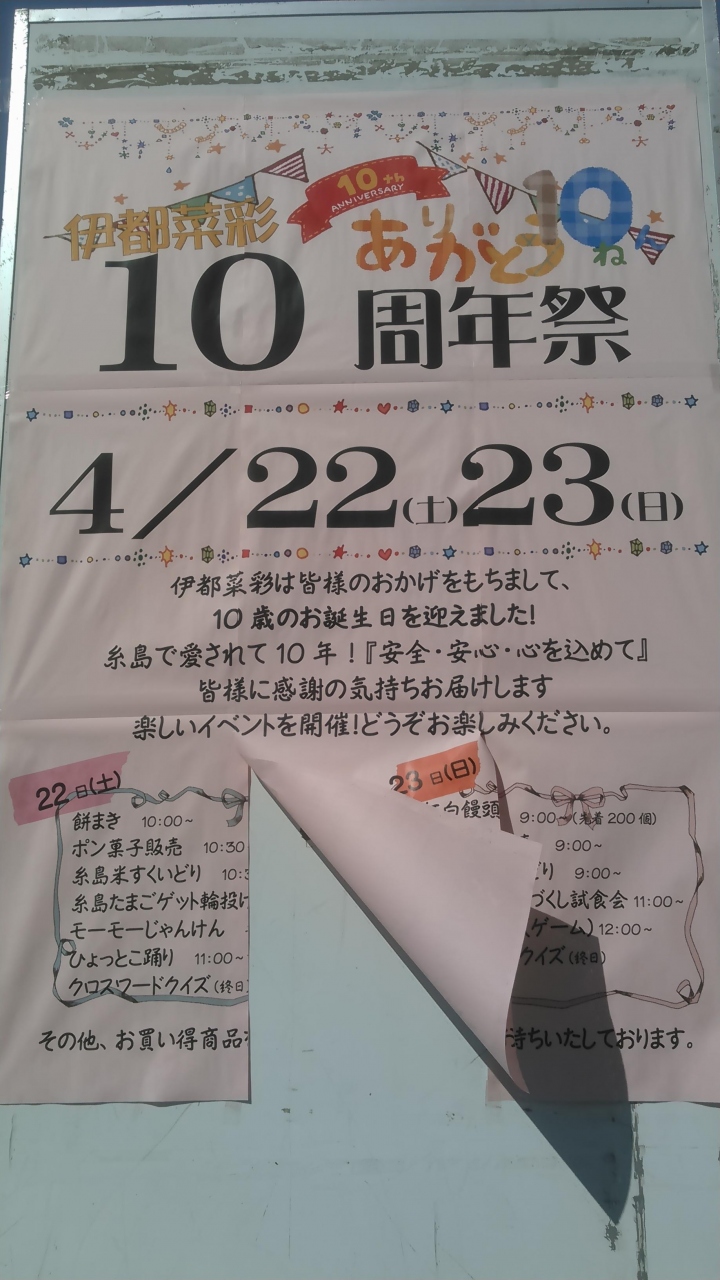 10th
ANNIVERSARY
伊都菜彩
ありがとう10ねん
10周年祭
4/22(土)23(日)
伊都菜彩は皆様のおかげをもちまして、
10歳のお誕生日を迎えました!
糸島で愛されて10年!『安全・安心・心を込めて』
皆様に感謝の気持ちお届けします
楽しいイベントを開催!どうぞお楽しみください。
22日(土)
餅まき 10:00~
ポン菓子販売 10:30
糸島米すくいどり 10:
糸島たまごゲット輪投げ
モーモーじゃんけん
ひょっとこ踊り 11:00~
クロスワードクイズ(終日
その他、お買い得商品
23日(日)
紅白饅頭 9:00~(先着200個)
9:00~
どり 9:00~
づくし試食会 11:00~
ゲーム) 12:00~
クイズ(終日)
待ちいたしております。